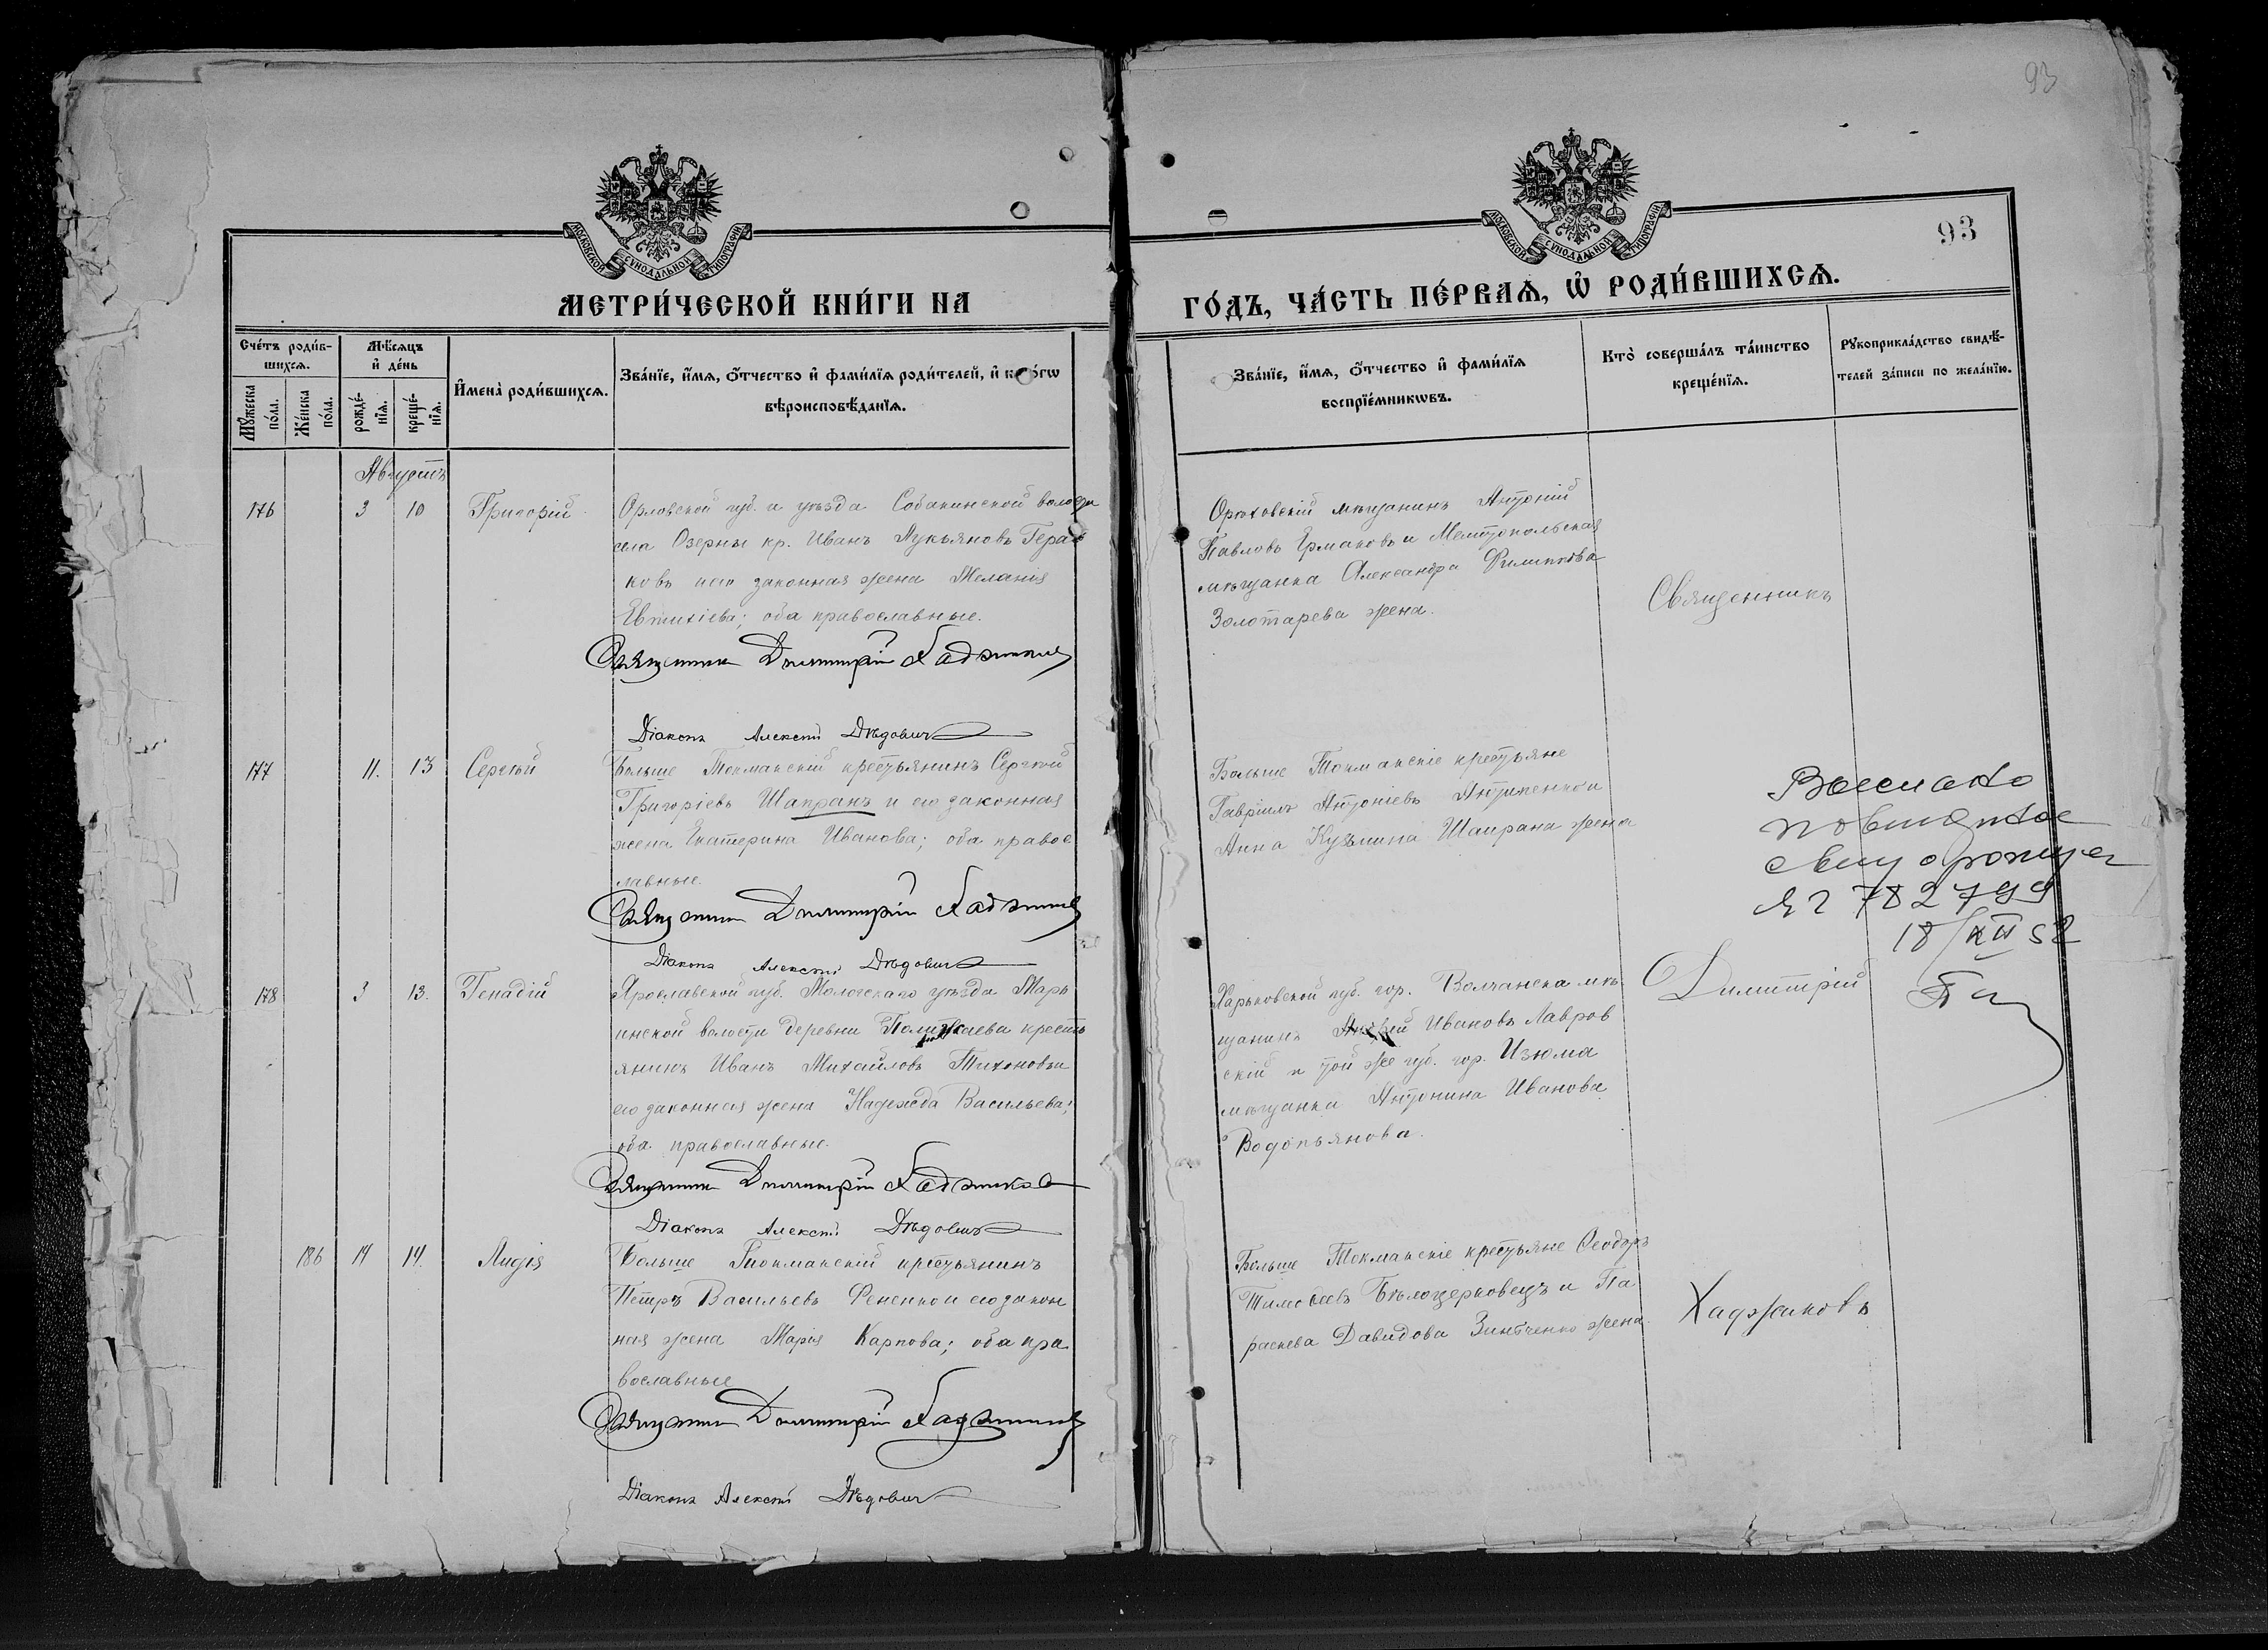 93
МОСКОВСКОЙ СѴНОДАЛЬНОЙ ТИПОГРАФІИ
МОСКОВСКОЙ СѴНОДАЛЬНОЙ ТИПОГРАФІИ
93
МЕТРИ́ЧЕСКОЙ КНИ́ГИ НА
ГО́ДЪ, ЧА́СТЬ ПЕ́РВАѦ, Ѡ РОДИ́ВШИХСѦ.
Сче́тъ роди́в-
шихсѧ.
Мꙋжеска
по́ла.
Же́нска
по́ла.
Мѣ́сѧцъ
и҆ де́нь
рожде́-
нїѧ.
креще́-
нїѧ.
И҆мена̀ роди́вшихсѧ.
Зва́нїе, и҆́мѧ, ѻ҆́тчество и҆ фамı́лїѧ роди́телей, и҆
вѣроисповѣ́данїѧ.
Зва́нїе, и҆́мѧ, ѻ҆́тчество и҆ фамı́лїѧ
воспрїе́мникѡвъ.
Кто̀ соверша́лъ та́инство
креще́нїѧ.
Рꙋкоприкла́дство свидѣ́-
телей за́писи по жела́нїю.
Августъ
176 3 10 Григорій
Орловской губ. и уѣзда Собакинской волости
села Озерны кр. Иванъ Лукьяновъ
ковъ и его законная жена Меланія
Евтихіева; оба православные.
Священник Димитрій Хаджинов
Діаконъ Алексѣй Дѣдович
Орѣховскій мѣщанинъ Антоній
Павловъ Ермаковъ и Мелитопольская
мѣщанка Александра Филиппова
Золотарева жена.
Священникъ
177 11. 13 Сергѣй
Больше Токмакскій крестьянинъ Сергѣй
Григоріевъ Шапранъ и его законная
жена Екатерина Иванова; оба право
лавные.
Священник Димитрій Хаджинов
Діаконъ Алексѣй Дѣдович
Больше Токмакскіе крестьяне
Гавріилъ Антоніевъ и
Анна Кузьмина Шапрана жена
повторное
782799
18/XII 52
178 3 13. Генадій
Ярославской губ. Мологскаго уѣзда Марь
инской волости деревни крестъ
янинъ Иванъ Михайловъ Тихоновъ и
его законная жена Надежда Васильева;
оба православные.
Священник Димитрій Хаджинов
Діаконъ Алексѣй Дѣдович
Харьковской губ. гор. Волчанска мѣ
щанинъ Ивановъ Лавров
скій и той же губ. гор. Изюма
мѣщанка Антонина Иванова
Водопьянова.
Димитрій
186 14 14. Лидія
Больше Токмакскій крестьянинъ
Петръ Васильевъ Фененко и его закон
ная жена Марія Карпова; оба пра
вославные
Священник Димитрій Хаджинов
Діаконъ Алексѣй Дѣдович
Больше Токмакскіе крестьяне Ѳеодоръ
Тимоѳеевъ Бѣлоцерковецъ и Па
раскева Давидова Зинченко жена.
Хаджиновъ